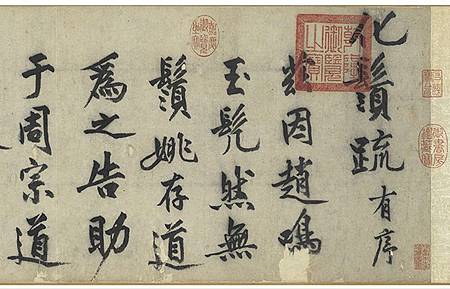 化鬚疏有序
茲因趙鳴
玉髡然無
鬚姚存道
爲之告助
于周宗道